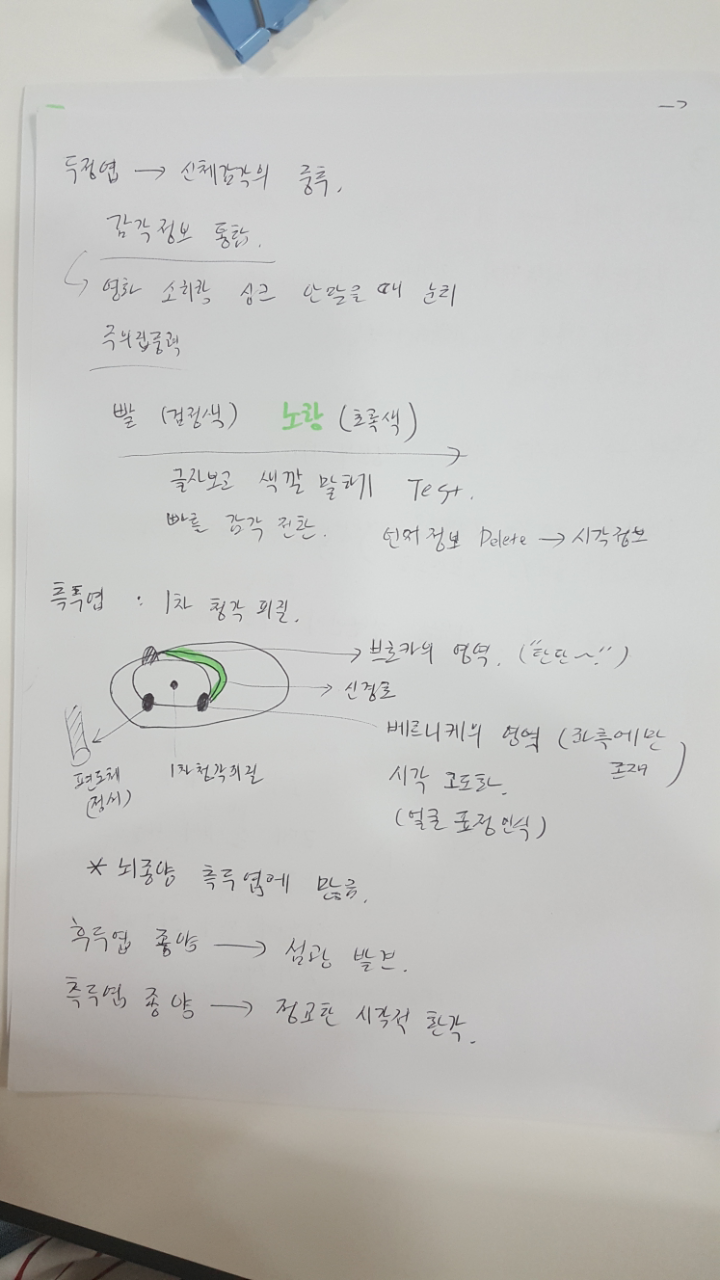 두정엽 → 신체감각의 중추.
감각정보 통합.
→ 영화 소리랑 싱크 안맞을때 분리
주의집중력
빨 (검정색) 노랑 (초록색)
글자보고 색깔 말하기 Test.
빠른 감각 전환. 언어정보 Delete → 시각정보
측두엽 : 1차 청각 피질.
브로카의 영역. ("탄탄~!")
신경로
베르니케의 영역 (좌측에만 존재)
편도체 (정서)
1차청각피질
시각 고도화.
(얼굴 표정 인식)
* 뇌종양 측두엽에 많음.
후두엽 종양 → 섬광 발견.
측두엽 종양 → 정교한 시각적 환각.